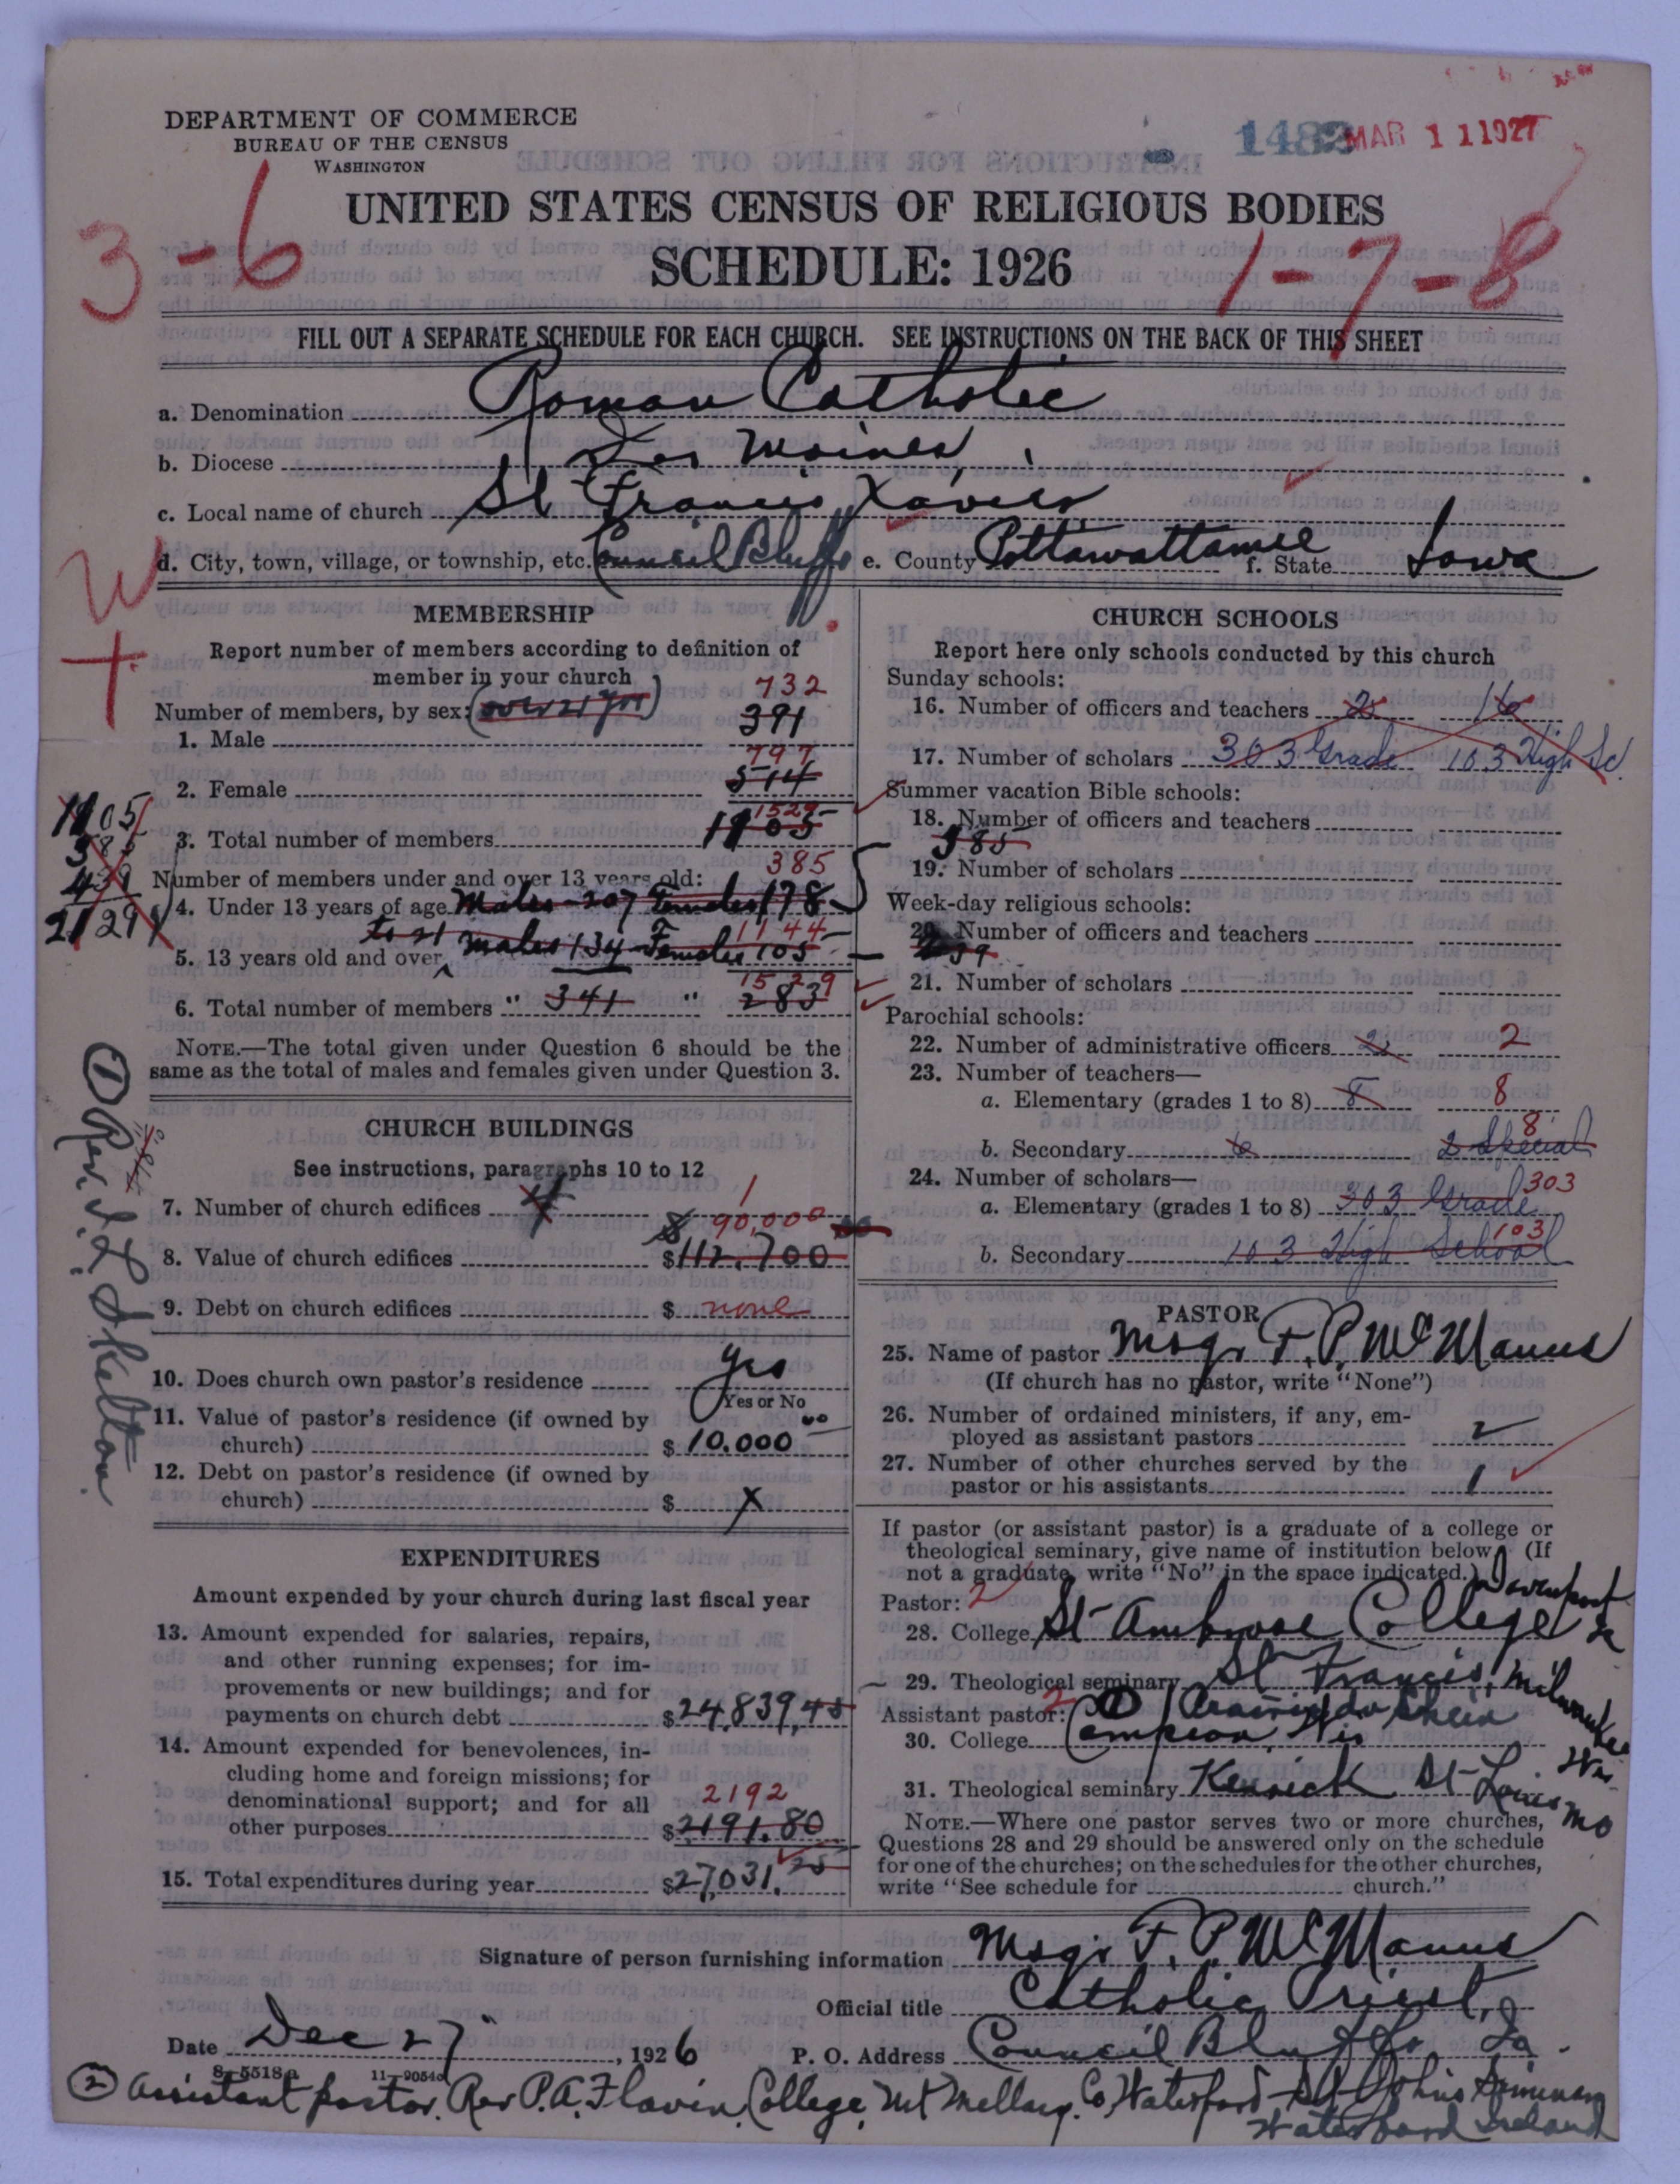 DEPARTMENT OF COMMERCE
BUREAU OF THE CENSUS
WASHINGTON
1482 MAR 11 1927
UNITED STATES CENSUS OF RELIGIOUS BODIES
3-6
SCHEDULE: 1926
1-7-8
FILL OUT A SEPARATE SCHEDULE FOR EACH CHURCH. SEE INSTRUCTIONS ON THE BACK OF THIS SHEET
a. Denomination Roman Catholic
b. Diocese Des Moines
c. Local name of church St Francis Xavier
d. City, town, village, or township, etc. Council Bluffs e. County Pottawattamie f. State Iowa
W
+
MEMBERSHIP
Report number of members according to definition of
member in your church
732
Number of members, by sex: (over 21 yrs)
391
1. Male
797
514
2. Female
1529
1105
3. Total number of members
1105
385
439
2129
385
Number of members under and over 13 years old:
4. Under 13 years of age Males-207 Females 178
385
to 21
1144
5. 13 years old and over Males 134 Females 105
239
1529
6. Total number of members " 341 " 283
NOTE.—The total given under Question 6 should be the
same as the total of males and females given under Question 3.
① Rev. I. L. Skelton
CHURCH BUILDINGS
See instructions, paragraphs 10 to 12
7. Number of church edifices 4 1
90,000
8. Value of church edifices $112,700
9. Debt on church edifices $ none
10. Does church own pastor's residence Yes
Yes or No
11. Value of pastor's residence (if owned by
church) $10.000
12. Debt on pastor's residence (if owned by
church) $ X
EXPENDITURES
Amount expended by your church during last fiscal year
13. Amount expended for salaries, repairs,
and other running expenses; for im-
provements or new buildings; and for
payments on church debt $24,839,45
14. Amount expended for benevolences, in-
cluding home and foreign missions; for
denominational support; and for all
2192
other purposes $2191.80
15. Total expenditures during year $27,031.25
CHURCH SCHOOLS
Report here only schools conducted by this church
Sunday schools:
16. Number of officers and teachers 2 16
17. Number of scholars 303 Grade 103 High Sc.
Summer vacation Bible schools:
18. Number of officers and teachers
19. Number of scholars
Week-day religious schools:
20. Number of officers and teachers
21. Number of scholars
Parochial schools:
22. Number of administrative officers 2 2
23. Number of teachers—
a. Elementary (grades 1 to 8) 8 8
8
b. Secondary 6 2 Special
24. Number of scholars—
a. Elementary (grades 1 to 8) 303 Grade 303
103
b. Secondary 103 High School
PASTOR
25. Name of pastor Msgr F. P. McManus
(If church has no pastor, write "None")
26. Number of ordained ministers, if any, em-
ployed as assistant pastors 2
27. Number of other churches served by the
pastor or his assistants 1
If pastor (or assistant pastor) is a graduate of a college or
theological seminary, give name of institution below. (If
not a graduate, write "No" in the space indicated.)
Pastor: 2
28. College St Ambrose College Davenport Ia
29. Theological seminary St Francis, Milwaukee Wis.
Assistant pastor: 2 ① Prairie du Chein
30. College Campion, Wis
31. Theological seminary Kenrick St Louis Mo
NOTE.—Where one pastor serves two or more churches,
Questions 28 and 29 should be answered only on the schedule
for one of the churches; on the schedules for the other churches,
write "See schedule for church."
Signature of person furnishing information Msgr F P McManus
Official title Catholic Priest,
Date Dec 27", 1926 P. O. Address Council Bluffs Ia.
8-5518a 11-9054c
② Assistant pastor. Rev P.A. Flavin, College, Mt Mellary. Co, Waterford - St Johns Seminary
Waterford Ireland